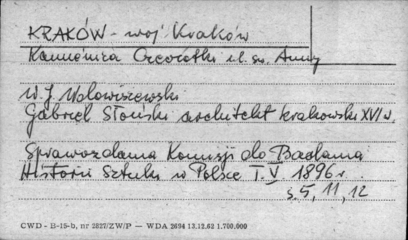 KRAKÓW - woj. Kraków
Kamienica Czeczotki ul. św. Anny
W. J. Wdowiszewski
Gabriel Słoński architekt krakowski XVI w.
Sprawozdania Komisji do Badania
Historii Sztuki w Polsce T. V. 1896 r.
s. 5, 11, 12
CWD - B-15-b, nr 2827/ZW/P — WDA 2694 13.12.62 1.700.000